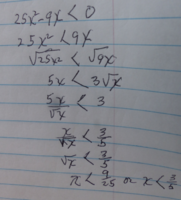 25x² - 9x < 0
25x² < 9x
√25x² < √9x
5x < 3√x
5x/√x < 3
x/√x < 3/5
√x < 3/5
x < 9/25 or x < 3/5